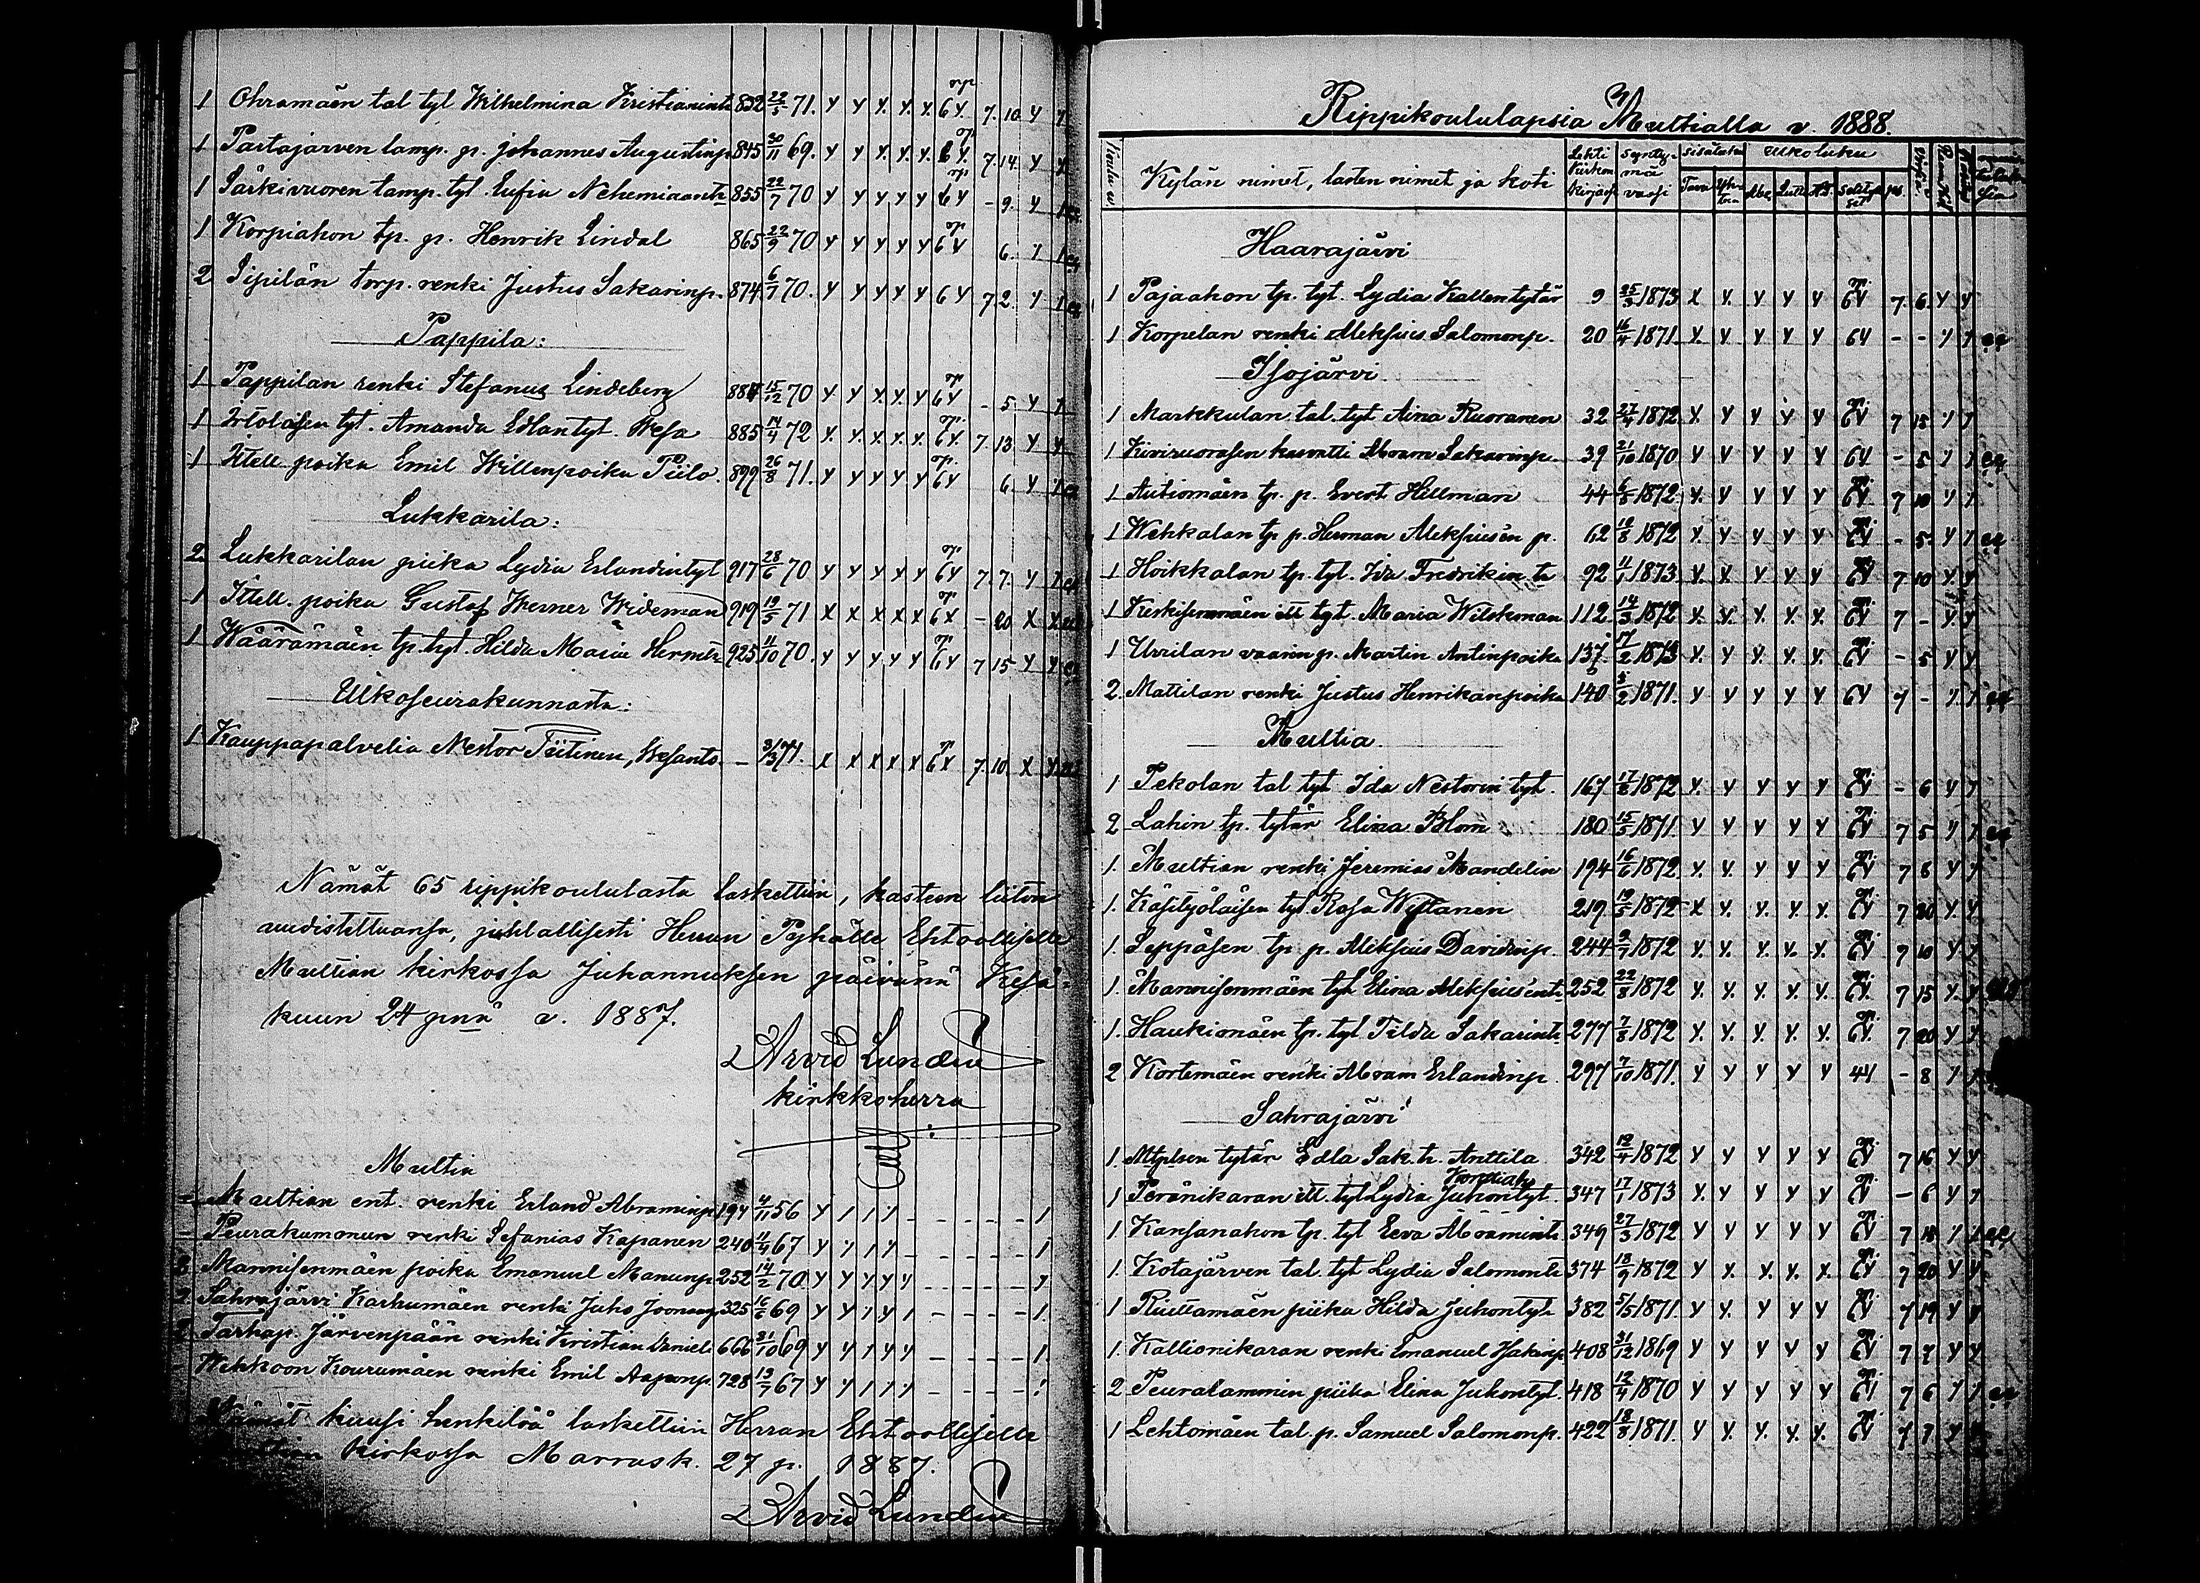 1 Ohramäen tal tyt Wilhelmina Kristianint. 832 22/5 71. y y y. y. y. 6y 7. 10 y y
1 Partajärven lamp. p. Johannes Augustinp. 845 30/11 69. y y y. y. y. 6y. 7 14. y y
1 Särkivuoren lamp. tyt. Eufia Nehemiaant. 855 22/7 70 y y y y y 6y - 9. y 1
1 Korpiahon tp. p. Henrik Lindal 865 22/9 70 y y y y y 6y 6. 1 1
2 Sipilän torp. renki Justus Sakarinp. 874 6/7 70. y y y y y 6y 7 2. y 1
Pappila:
1 Pappilan renki Stefanus Lindeberg 884 15/12 70 y y y. y. y 6y - 5 y 1
1 Irtolaisen tyt. Amanda Edlantyt. Wesa 885 14/4 72 y. y. y. y. y. 6y. 7. 13. y y
1 Itell. poika Emil Willenpoika Piilo. 899 26/8 71. y y y y y 6y 6 y 1
Lukkarila:
2 Lukkarilan piika Lydia Erlandintyt 917 28/6 70 y y y y y 6y 7. 7. y 1
1 Itell. poika Gustaf Werner Wideman 919 19/5 71 x x x x x 6x - 20 x x
1 Wäärämäen tp. tyt. Hilda Maria Hermint. 925 11/10 70. y y y y y 6y 7 15 y y
Ulkoseurakunnasta:
1 Kauppapalvelia Nestor Tiitinen, Wesanto. - 31/3 71. x x x x x 6x 7. 10. x x
Nämät 65 rippikoululasta laskettiin, kasteen liiton
uudistettuansa, juhlallisesti Herran Pyhälle Ehtoolliselle
Multian kirkossa Juhannuksen päivänä Kesä-
kuun 24 pnä v. 1887.
Arvid Lundén
kirkkoherra
Multia
Multian ent. renki Erland Abraminp. 194 4/11 56 y 1 1 1 - - - - - 1.
Peurakummun renki Sefanias Kapanen 240 11/4 67 y y 1 y - - - - - 1.
3 Mannisenmäen poika Emanuel Manunp. 252 14/2 70 y y y y y - - - - y
2 Sahrajärvi Karhumäen renki Juho Joonanp. 325 16/6 69 y y 1 y 1 - - - - 1.
2 Tarhap. Järvenpään renki Kristian Daniel. 666 31/10 69 y y 1 y y - - - - 1.
Wehkoon Kourumäen renki Emil Aaponp. 728 13/7 67 y y 1 1 y - - - - 1
Nämät kuusi henkilöä laskettiin Herran Ehtoolliselle
Multian Kirkossa Marrask. 27 p. 1887.
Arvid Lundén
Rippikoululapsia Multialla v. 1888.
Kylän nimet, lasten nimet ja koti
Lehti Kirkon Kirjassa
Syntymä vuosi
Sisäluku
Ulkoluku
Haarajärvi
1 Pajaahon tp. tyt. Lydia Kallentytär 9 25/3 1873 x y. y y y 6y 7. 6. y y
1 Korpelan renki Aleksius Salomonp. 20 16/4 1871 y. y y y y 6y - - y y
Isojärvi
1 Markkulan tal. tyt Aina Ruoranen 32 27/4 1872 y. y y y y 6y 7 15 y y
1 Kivivuorasen kasvatti Abram Sakarinp. 39 21/10 1870 y y y y y 6y - 5 1 1
1 Autiomäen tp. p. Evert Hillman 44 6/8 1872 y. y y y y 6y 7 10 y 1
1 Wehkalan tp p. Herman Aleksiusen p. 62 19/8 1872 y. y. y y y 6y - 5 y 1
1 Hoikkalan tp. tyt. Ida Fredrikin t. 92 11/1 1873 y. y. y y y 6y 7 10 y. y
1 Keskisenmäen itt tyt. Maria Wilckman 112 14/3 1872 y. y. y. y. y. 6y 7 - y. y
1 Uurilan vaarin p. Martin Antinpoika 137. 17/2 1873 y. y y. y. y. 6y - 5 y y
2 Mattilan renki Justus Henrikanpoika 140 5/2 1871. y y y y y 6y y - 1. 1
Multia.
1 Pekolan tal tyt Ida Nestorin tyt. 167 17/6 1872 y. y y y y 6y - 6 y 1
2 Lahin tp. tytär Elina Blom 180 15/5 1871 y y y y y 6y 7 5 y 1
1. Multian renki Jeremias Mandelin 194 16/6 1872 y. y. y y y 6y 7 8 y y
1. Käsityöläisen tyt. Rosa Wiitanen 219 19/5 1872 x y. y. y. y. 6y 7 20 y. y.
1. Seppäsen tp. p. Aleksius Davidinp. 244 9/7 1872 y. y. y. y. y. 6y 7 10 y y
1. Mannisenmäen tyt Elina Aleksiusent. 252 22/8 1872 y. y. y. y. y. 6y. 7 15 y. y
1. Haukiomäen tp. tyt Tilda Sakarint. 277 7/8 1872 y. y. y. y. y. 6y. 7 20 y y
2 Kortemäen renki Abram Erlandinp 297 7/10 1871. y y y y y 4y - 8 y 1
Sahrajärvi
1. Mtplsen tytär Edla Sak.t. Anttila 342 12/4 1872 y y y y y 6y 7 16 y y
Korpiaho
1 Peränikaran itt. tyt Lydia Juhontyt. 347 17/1 1873 y. y y y y 6y - 6 y 1
1 Kansanahon tp. tyt Eeva Abramint. 349 27/3 1872 y y y y y 6y 7 18 1 1
1. Kotajärven tal. tyt Lydia Salomont. 374 13/9 1872 y y. y. y. y. 6y 7 20 y y
1 Riuttamäen piika Hilda Juhontyt. 382 5/5 1871. y y. y y y 6y 7 19 y y
1. Kallionikaran renki Emanuel Isakinp 408 31/12 1869 y y y y y 6y 7 7 y y
2 Peuralammin piika Elina Juhontyt. 418 12/9 1870 y y y y y 6y 7 6 y 1
1 Lehtomäen tal. p. Samuel Salomonp. 422 18/8 1871. y y y. y. y. 6y 7 7 y